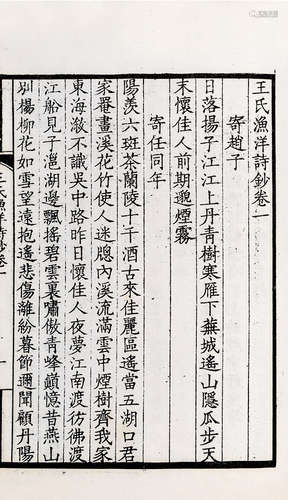 王氏漁洋詩鈔卷一
寄趙子
日落揚子江江上丹青樹寒雁下蕪城遙山隱瓜步天
末懷佳人前期邈煙霧
寄任同年
陽羨六班茶蘭陵十千酒古來佳麗區遙當五湖口君
家罨畫溪花竹使人迷牕內溪流滿雲中煙樹齊我家
東海澨不識吳中路昨日懷佳人夜夢江南渡彷彿渡
江船見子湖邊飄颻碧雲裏嘯傲青峰巔憶昔燕山
別楊柳花如雪望遠抱遙悲傷離紛暮節邇聞顧丹陽
王氏漁洋詩鈔卷一